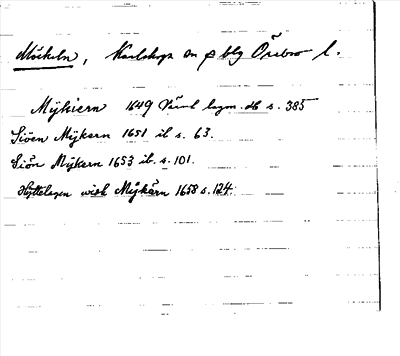 Möckeln, Karlskoga sn o bbg Örebro l.
Mÿkiern 1649 Värml lagm. db s. 385
Siöen Mÿkern 1651 ib s. 63.
Siön Mÿkern 1653 ib. s. 101.
Hÿttelagen widh Mÿkärn 1658 s. 124.